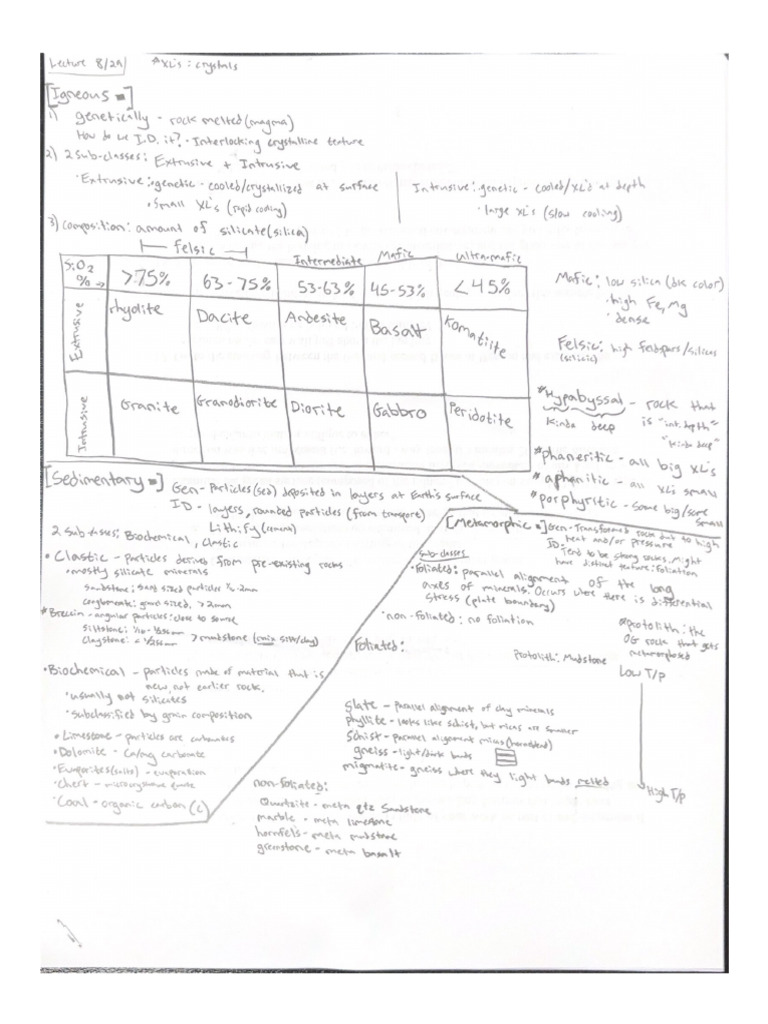 Lecture 8/29 *XL's: crystals
[Igneous]
1) genetically - rock melted (magma)
How do we I.D. it? - Interlocking crystalline texture
2) 2 sub-classes: Extrusive + Intrusive
• Extrusive: genetic - cooled/crystallized at surface
• Small XL's (rapid cooling)
Intrusive: genetic - cooled/XL'd at depth
• large XL's (slow cooling)
3) composition: amount of silicate (silica)
Felsic Intermediate Mafic Ultra-mafic
SiO2 % → >75% 63-75% 53-63% 45-53% <45%
Extrusive rhyolite Dacite Andesite Basalt Komatiite
Intrusive Granite Granodiorite Diorite Gabbro Peridotite
Mafic: low silica (drk color)
• high Fe, Mg
• dense
Felsic: high feldspars/silicas
(silicic)
*Hypabyssal - rock that
Kinda deep is "int. depth"
"kinda deep"
*phaneritic - all big XL's
*aphanitic - all XL's small
*porphyritic - some big/some small
[Sedimentary] Gen - Particles (sed) deposited in layers at Earth's surface
ID - layers, rounded particles (from transport)
Lithify (cement)
2 Sub-classes: Biochemical, Clastic
• Clastic - particles derived from pre-existing rocks
• mostly silicate minerals
Sandstone: sand sized particles 1/16-2mm
conglomerate: gravel sized, > 2mm
*Breccia - angular particles: close to source
Siltstone:
claystone: < 1/256mm > mudstone (mix silt/clay)
• Biochemical - particles made of material that is
new, not earlier rock.
• usually not silicates
• subclassified by grain composition
• Limestone - particles are carbonates
• Dolomite - Ca/mg carbonate
• Evaporites (salts) - evaporation
• Chert - microcrystalline
• Coal - organic carbon (C)
[Metamorphic] Gen - Transformed rocks due to high
heat and/or pressure
ID: Tend to be strong rocks, might
have distinct texture: foliation
Sub-classes
• foliated: parallel alignment of the long
axes of minerals. Occurs where there is differential
stress (plate boundary)
• non-foliated: no foliation
*protolith: the
OG rock that gets
metamorphosed
Foliated:
Protolith: Mudstone
Low T/P
slate - parallel alignment of clay minerals
phyllite - looks like schist, but micas are smaller
Schist - parallel alignment micas (hornblend)
gneiss - light/dark bands
migmatite - gneiss where they light bands melted
High T/P
non-foliated:
Quartzite - meta qtz Sandstone
marble - meta limestone
hornfels - meta mudstone
greenstone - meta basalt